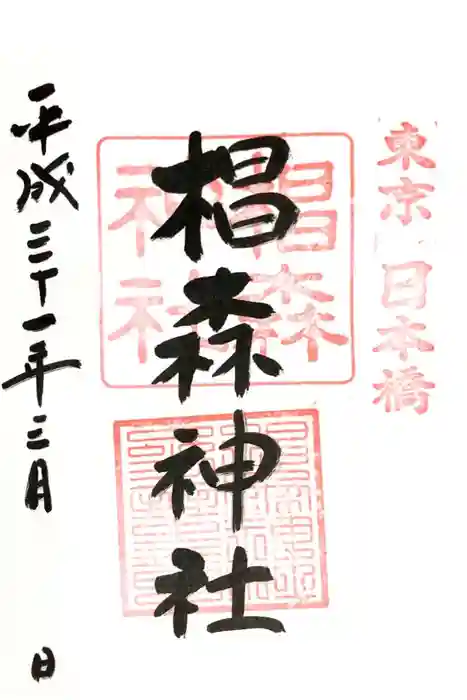 東京 日本橋
椙森神社
椙森
神社
平成三十一年三月 日